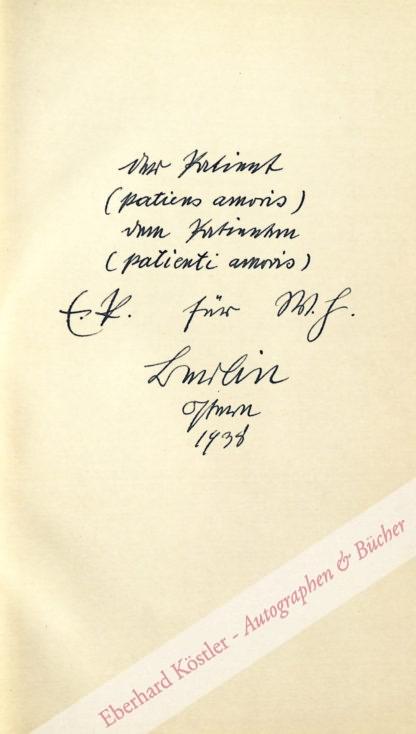 der Patient
(patiens amoris)
dem Patienten
(patienti amoris)
E. P. für W. G.
Berlin
Ostern
1938
Eberhard Köstler - Autographen & Bücher